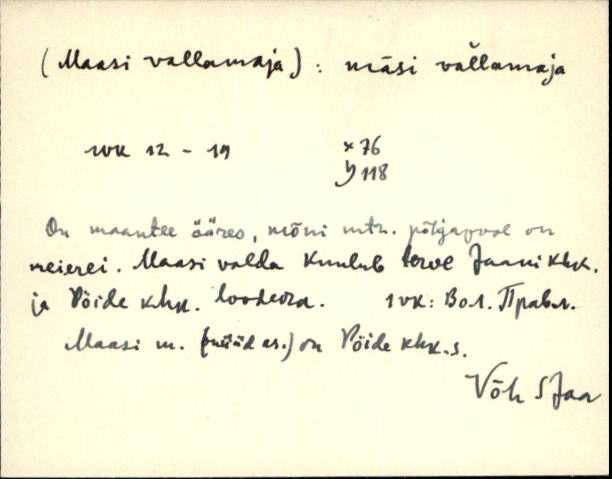 (Maasi vallamaja): māsi vàllamaja
1vk 12 - 19 x 76
y 118
On maantee ääres, mõni mtr. põhjapool on
meierei. Maasi valda kuulub terve Jaani khk.
ja Pöide khk. loodeosa. 1vk: Вол. Правл.
Maasi m. (nüüd as.) on Pöide khk.s.
Võh SJaa